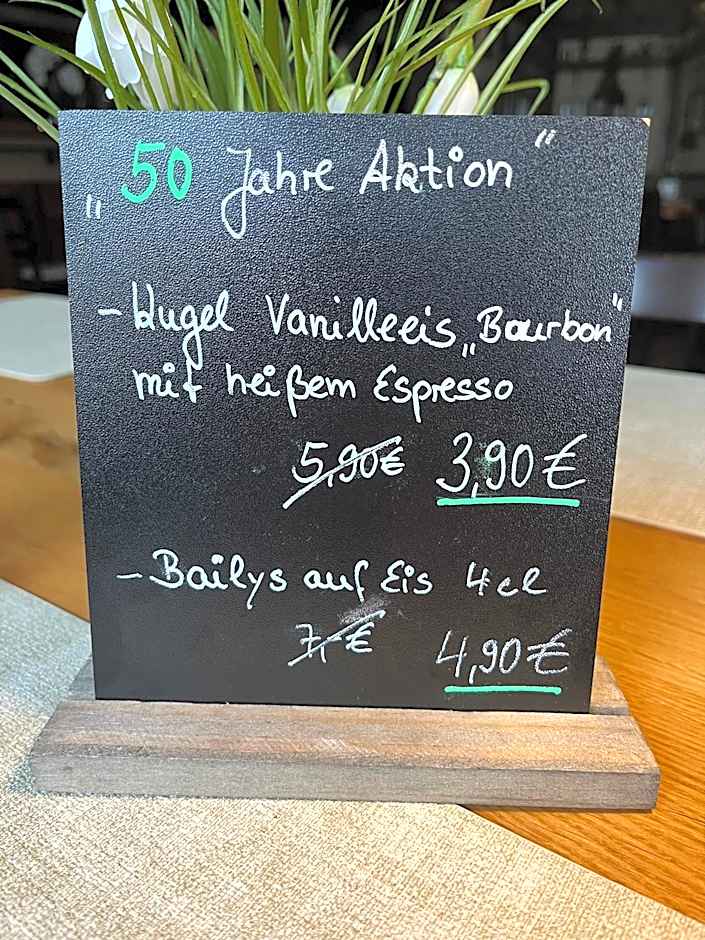 „50 Jahre Aktion"
- Kugel Vanilleeis „Bourbon"
mit heißem Espresso
5,90€ 3,90€
- Bailys auf Eis 4cl
7,-€ 4,90€